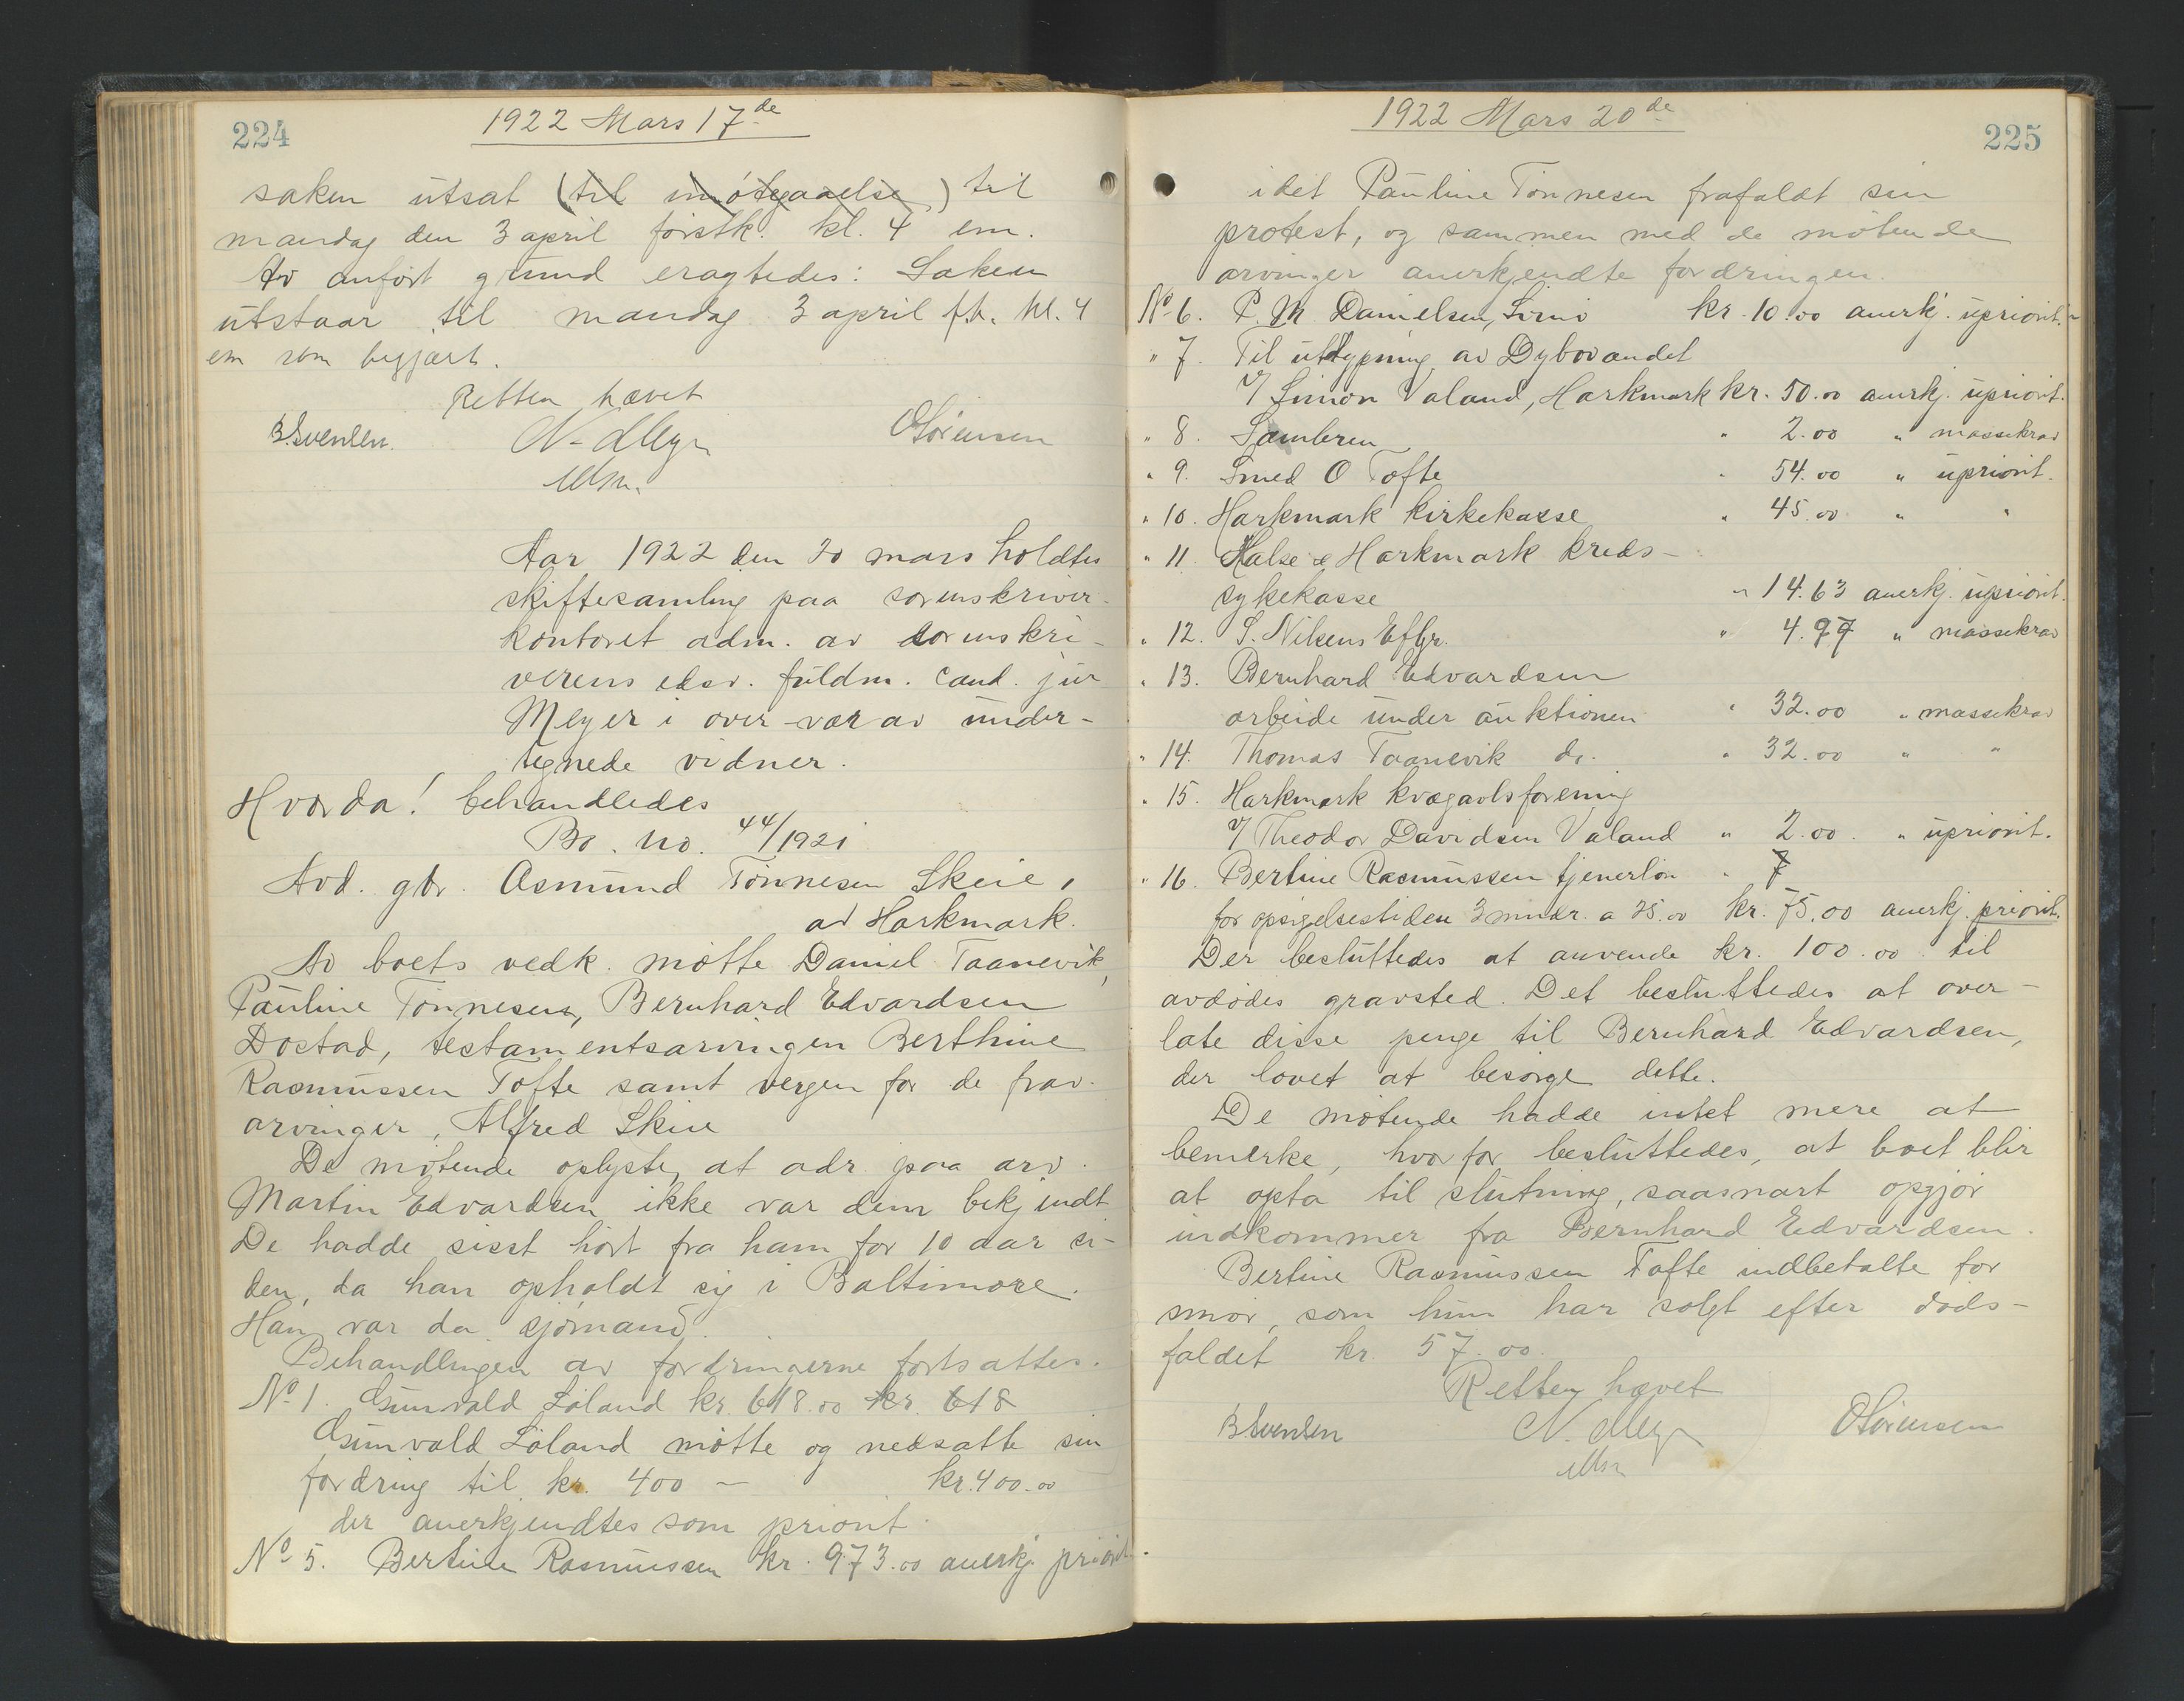 224
1922 Mars 17de
saken utsat (til imøtegaaelse) til
mandag den 3 april førstk. kl. 4 em.
Av anført grund eragtedes: Saken
utstaar til mandag 3 april f.k. kl. 4
em som begjært.
Retten hævet
B. Svensen. N. Meyer O Sørensen
Aar 1922 den 20 mars holdtes
skiftesamling paa sorenskriver-
kontoret adm. av sorenskri-
verens edsv. fuldm. cand. jur
Meyer i overvær av under-
tegnede vidner.
Hvorda! behandledes
Bo. no. 44/1921
Avd. gbr. Asmund Tønnesen Skeie,
av Harkmark.
Av boets vedk. møtte Daniel Taanevik,
Pauline Tønnesen, Bernhard Edvardsen
Dostad, testamentsarvingen Berthine
Rasmussen Tofte samt vergen for de frav.
arvinger, Alfred Skeie
De møtende oplyste, at adr. paa arv.
Martin Edvardsen ikke var dem bekjendt
De hadde sisst hørt fra ham for 10 aar si-
den, da han opholdt sig i Baltimore.
Han var da sjømand.
Behandlingen av fordringerne fortsattes.
No 1. Gunvald Løland kr. 618.00 kr. 618
Gunvald Løland møtte og nedsatte sin
fordring til kr. 400 — kr. 400.00
der anerkjendtes som priorit.
No 5. Bertine Rasmussen kr. 973.00 anerkj. priorit.
1922 Mars 20de
225
idet Pauline Tønnesen frafaldt sin
protest, og sammen med de møtende
arvinger anerkjendte fordringen.
No 6. P. M Danielsen, kr. 10.00 anerkj. upriorit.
" 7. Til uttypning av Dybovandet
v/ Simon Valand, Harkmark kr. 50.00 anerkj. upriorit.
" 8. " 2.00 " massekrav
" 9. Smed O Tofte " 54.00 " upriorit.
" 10. Harkmark kirkekasse " 45.00 " "
" 11. Halse & Harkmark kreds-
sykekasse " 14.63 anerkj. upriorit.
" 12. S. Nilsens Eftfgr. " 4.97 " massekrav
" 13. Bernhard Edvardsen
arbeide under auktionen " 32.00 " massekrav
" 14. Thomas Taanevik do. " 32.00 " "
" 15. Harkmark kvægavlsforening
v/ Theodor Davidsen Valand " 2.00 " upriorit.
" 16. Bertine Rasmussen tjenerløn " 7
for opsigelsestiden 3 mndr. a 25.00 kr. 75.00 anerkj. priorit.
Der besluttedes at anvende kr. 100.00 til
avdødes gravsted. Det besluttedes at over-
late disse penge til Bernhard Edvardsen,
der lovet at besørge dette.
De møtende hadde intet mere at
bemerke, hvorfor besluttedes, at boet blir
at opta til slutning, saasnart opgjør
indkommer fra Bernhard Edvardsen.
Bertine Rasmussen Tofte indbetalte for
smør, som hun har solgt efter døds-
faldet kr. 57.00.
Retten hævet
B Svensen N. Meyer O Sørensen